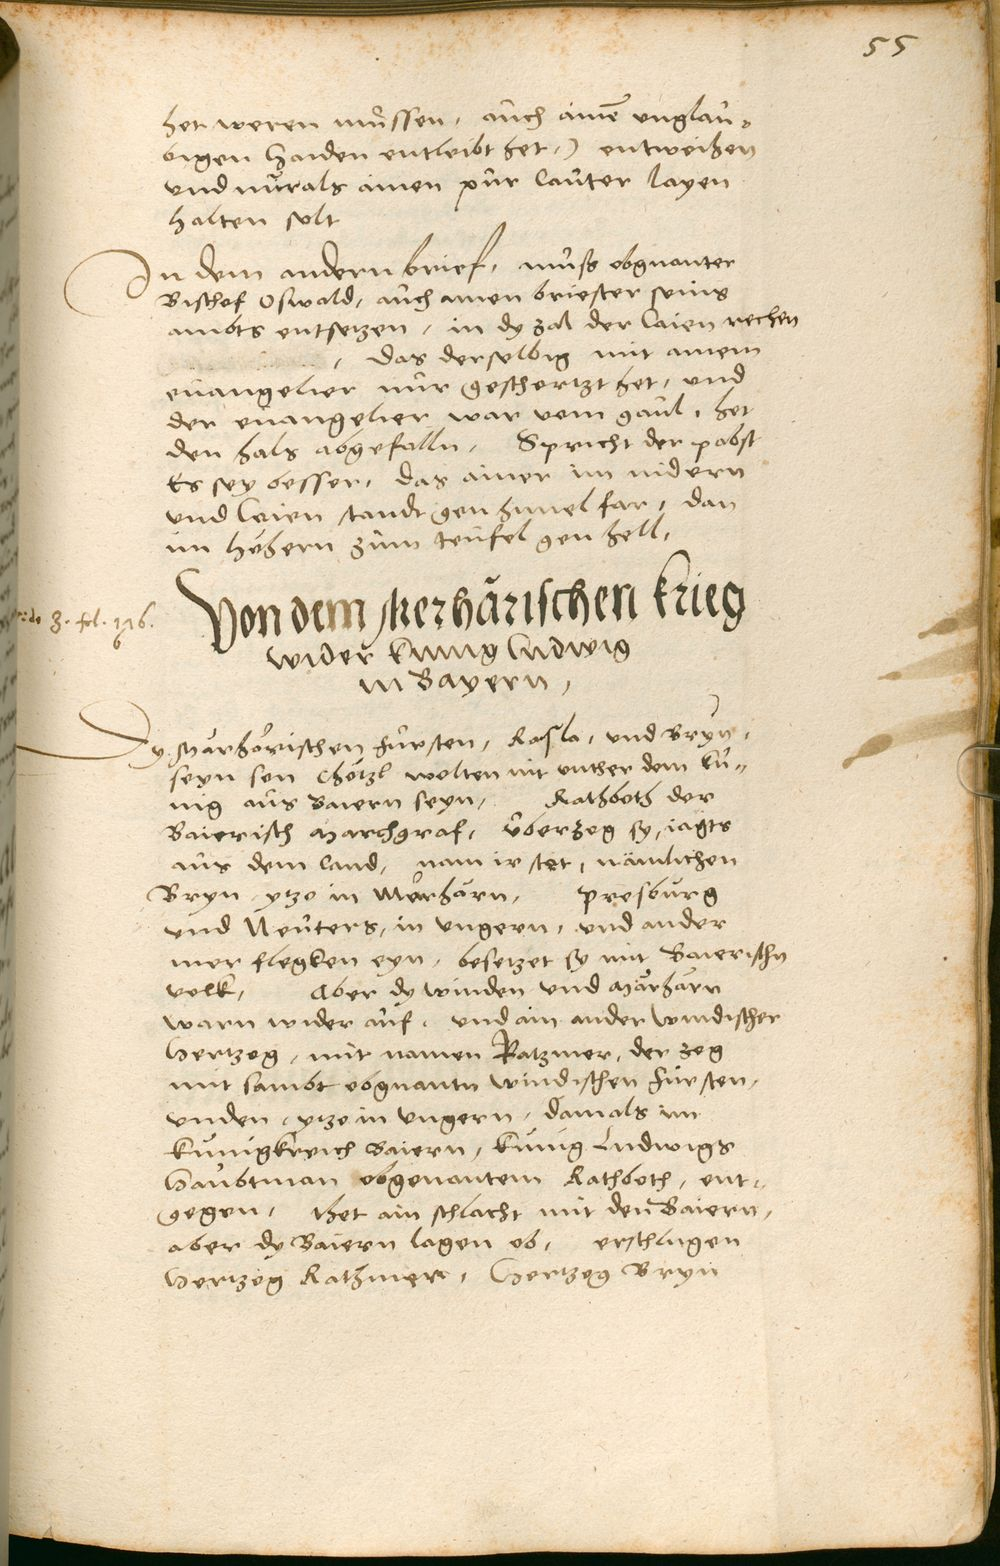 55
het weren müssen, auch ainē unglau-
bigen Haiden entleibt het,) entweihen
und nur als ainen pur lauter layen
halten solt
In dem andern brief, muss obgnanter
Bischof Oswald, auch ainen briester seins
ambts entsetzen, in dy zal der laien rechen
, das derselbig mit ainem
evangelier nur geschertzt het, und
der evangelier war vom gaul, het
den hals abgefalln, Spricht der pabst
Es sey besser, das ainer im nidern
und leien standt gen himel far, dan
im höhern zum teufel gen hell,
3. fol. 126.
6
Von dem Merhärischen krieg
wider künig Ludwig
in Bayern,
Dy Märhärischen fürsten, Rasla, und Bryn,
seyn son Chötzl wolten nit unther dem kü-
nig aus Baiern seyn, Rathboth der
Baierisch Marchgraf, überzog sy, iagts
aus dem land, nam ir stet, nämlichen
Bryn ytzo in Märhärn, Presburg
und Neuters, in Ungern, und ander
mer flegken eyn, besetzet sy mit Baierischn
volk, Aber dy Winden und Märhärn
warn wider auf, und ain ander Windischer
Hertzog, mit namen Ratzmer, der zog
mit sambt obgnantn Windischen fürsten,
unden, ytzo in Ungern, damals im
künigkreich Baiern, künig Ludwigs
Haubtman obgenantem Rathboth, ent-
gegen, thet ain schlacht mit den Baiern,
aber dy Baiern lagen ob, erschlugen
Hertzog Rathmer, Hertzog Bryn